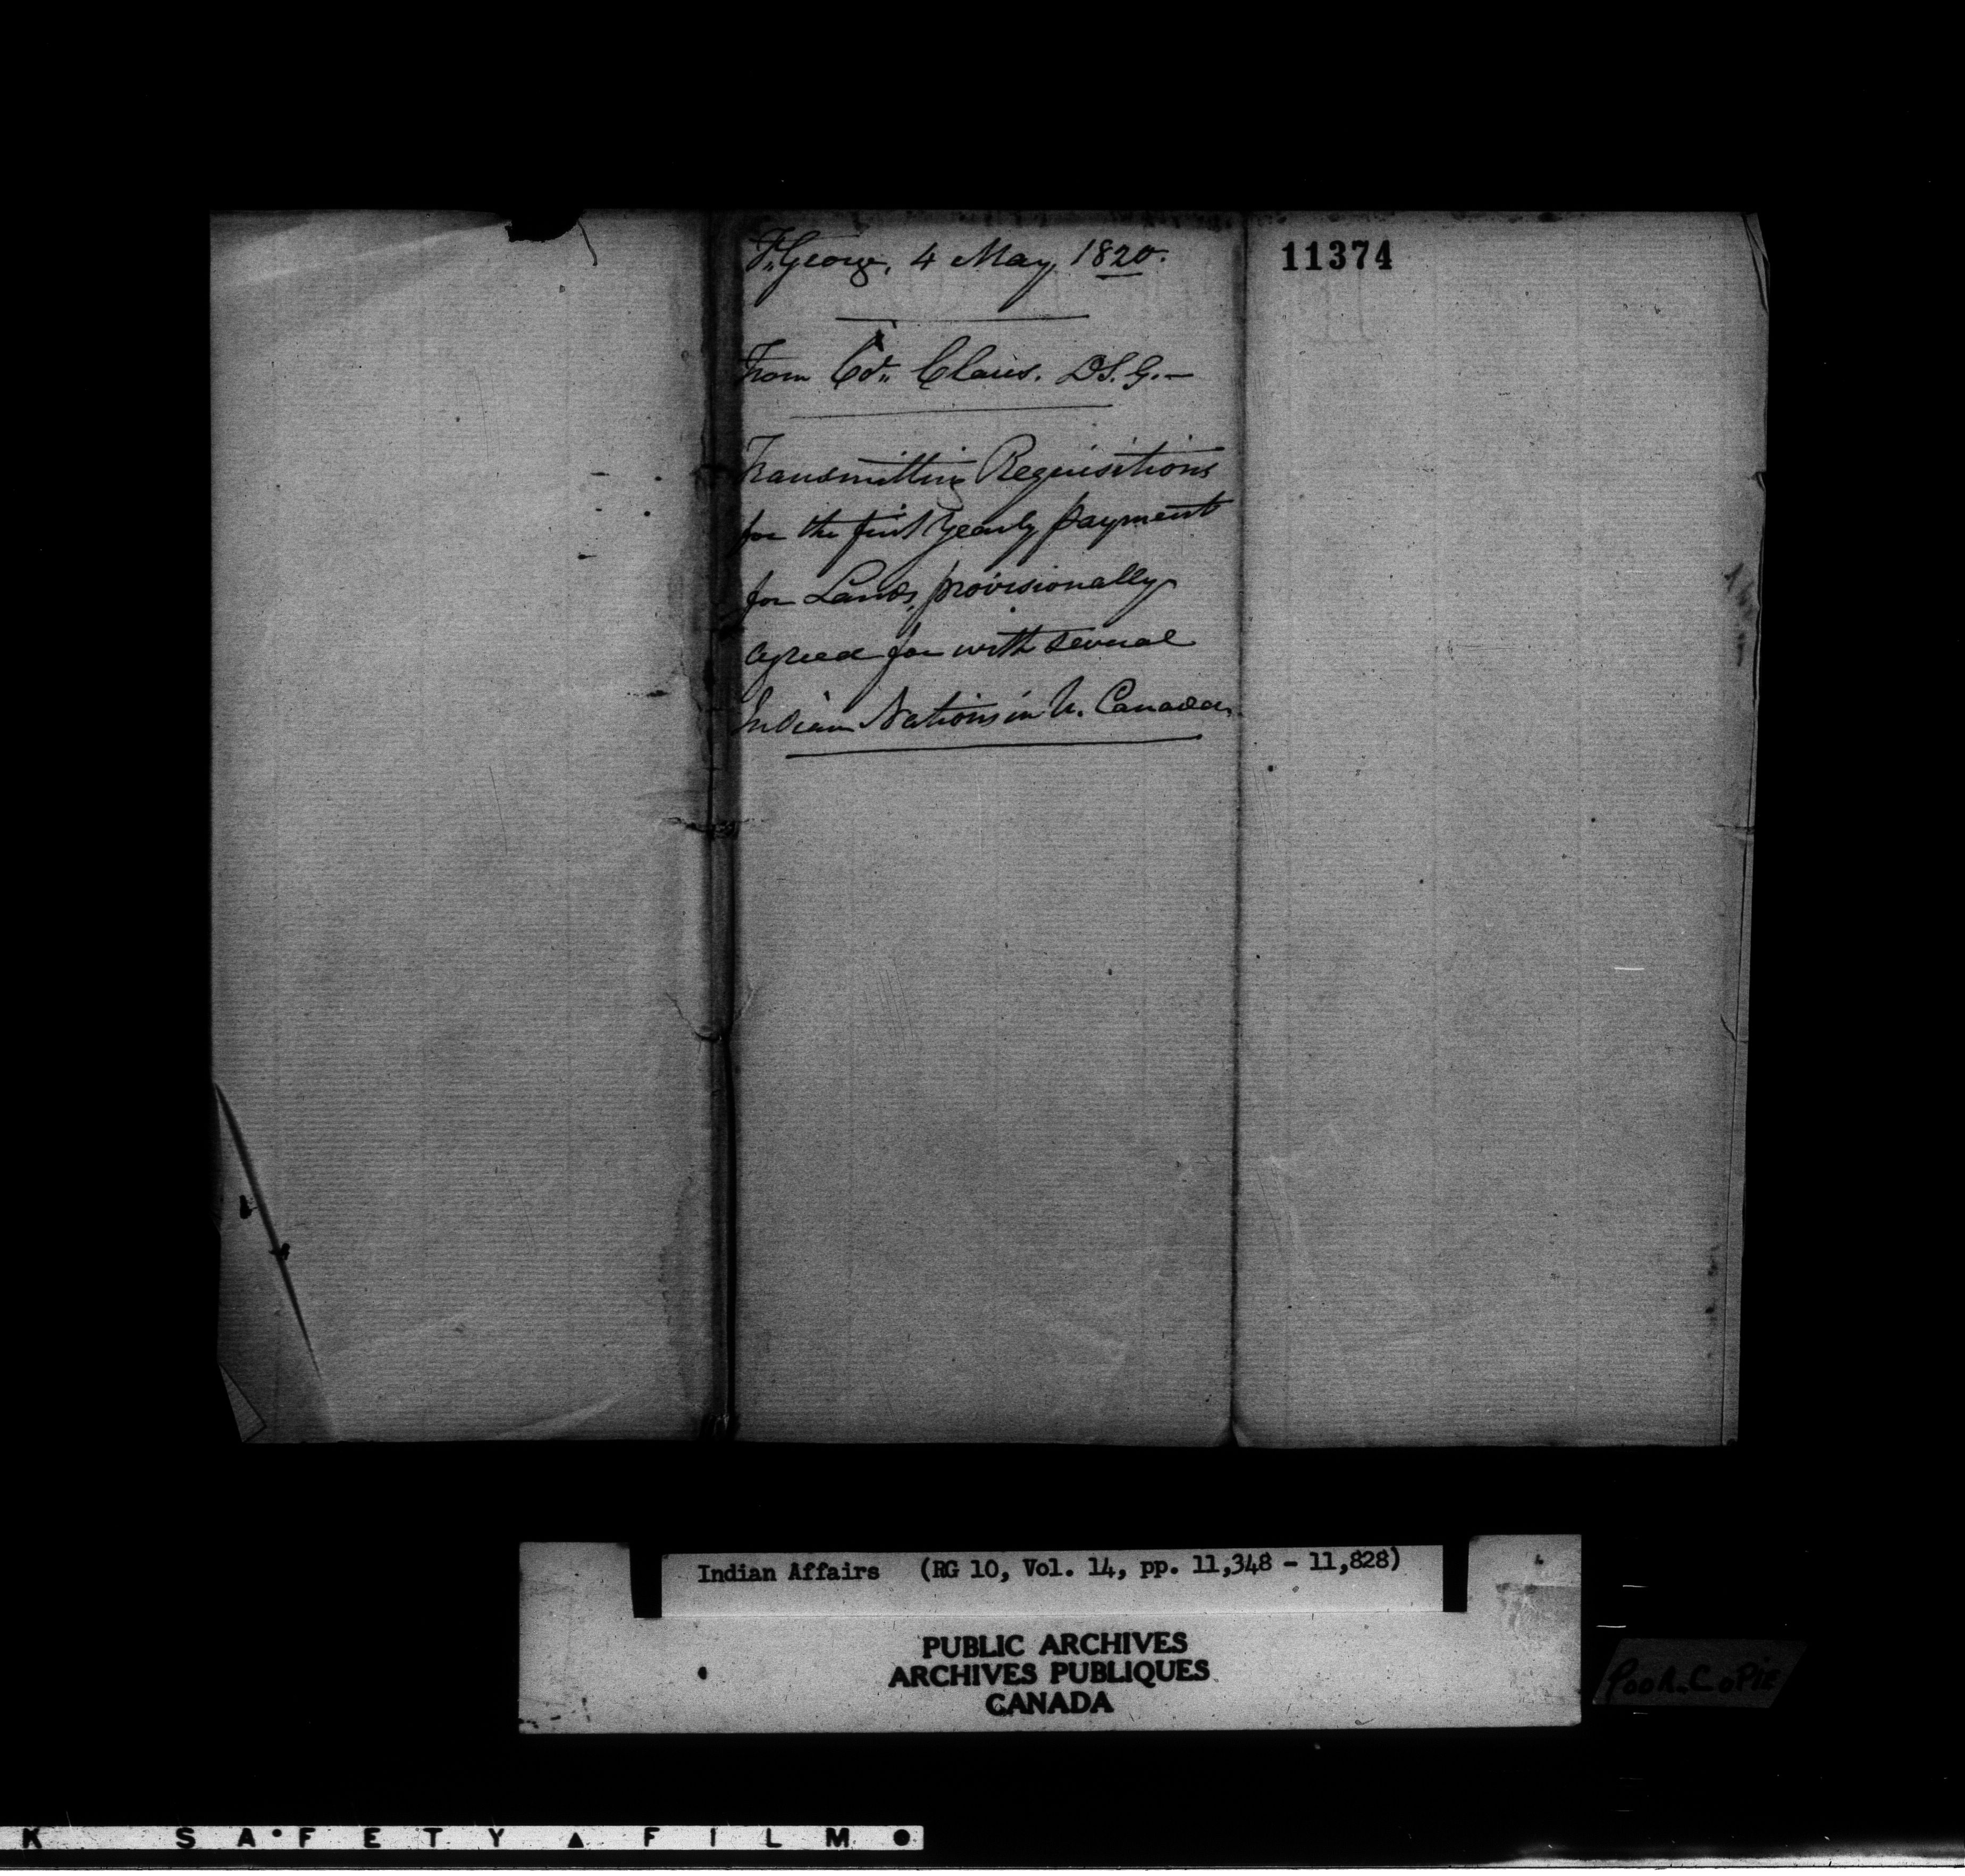 Ft. George, 4 May, 1820.
11374
From Col. Claus. D.S.G.—
Transmitting Requisitions
for the first Yearly payment
for Lands, provisionally
agreed for with several
Indian Nations in U. Canada.
Indian Affairs (RG 10, Vol. 14, pp. 11,348 - 11,828)
PUBLIC ARCHIVES
ARCHIVES PUBLIQUES
CANADA
POOR COPIE
K SAFETY FILM